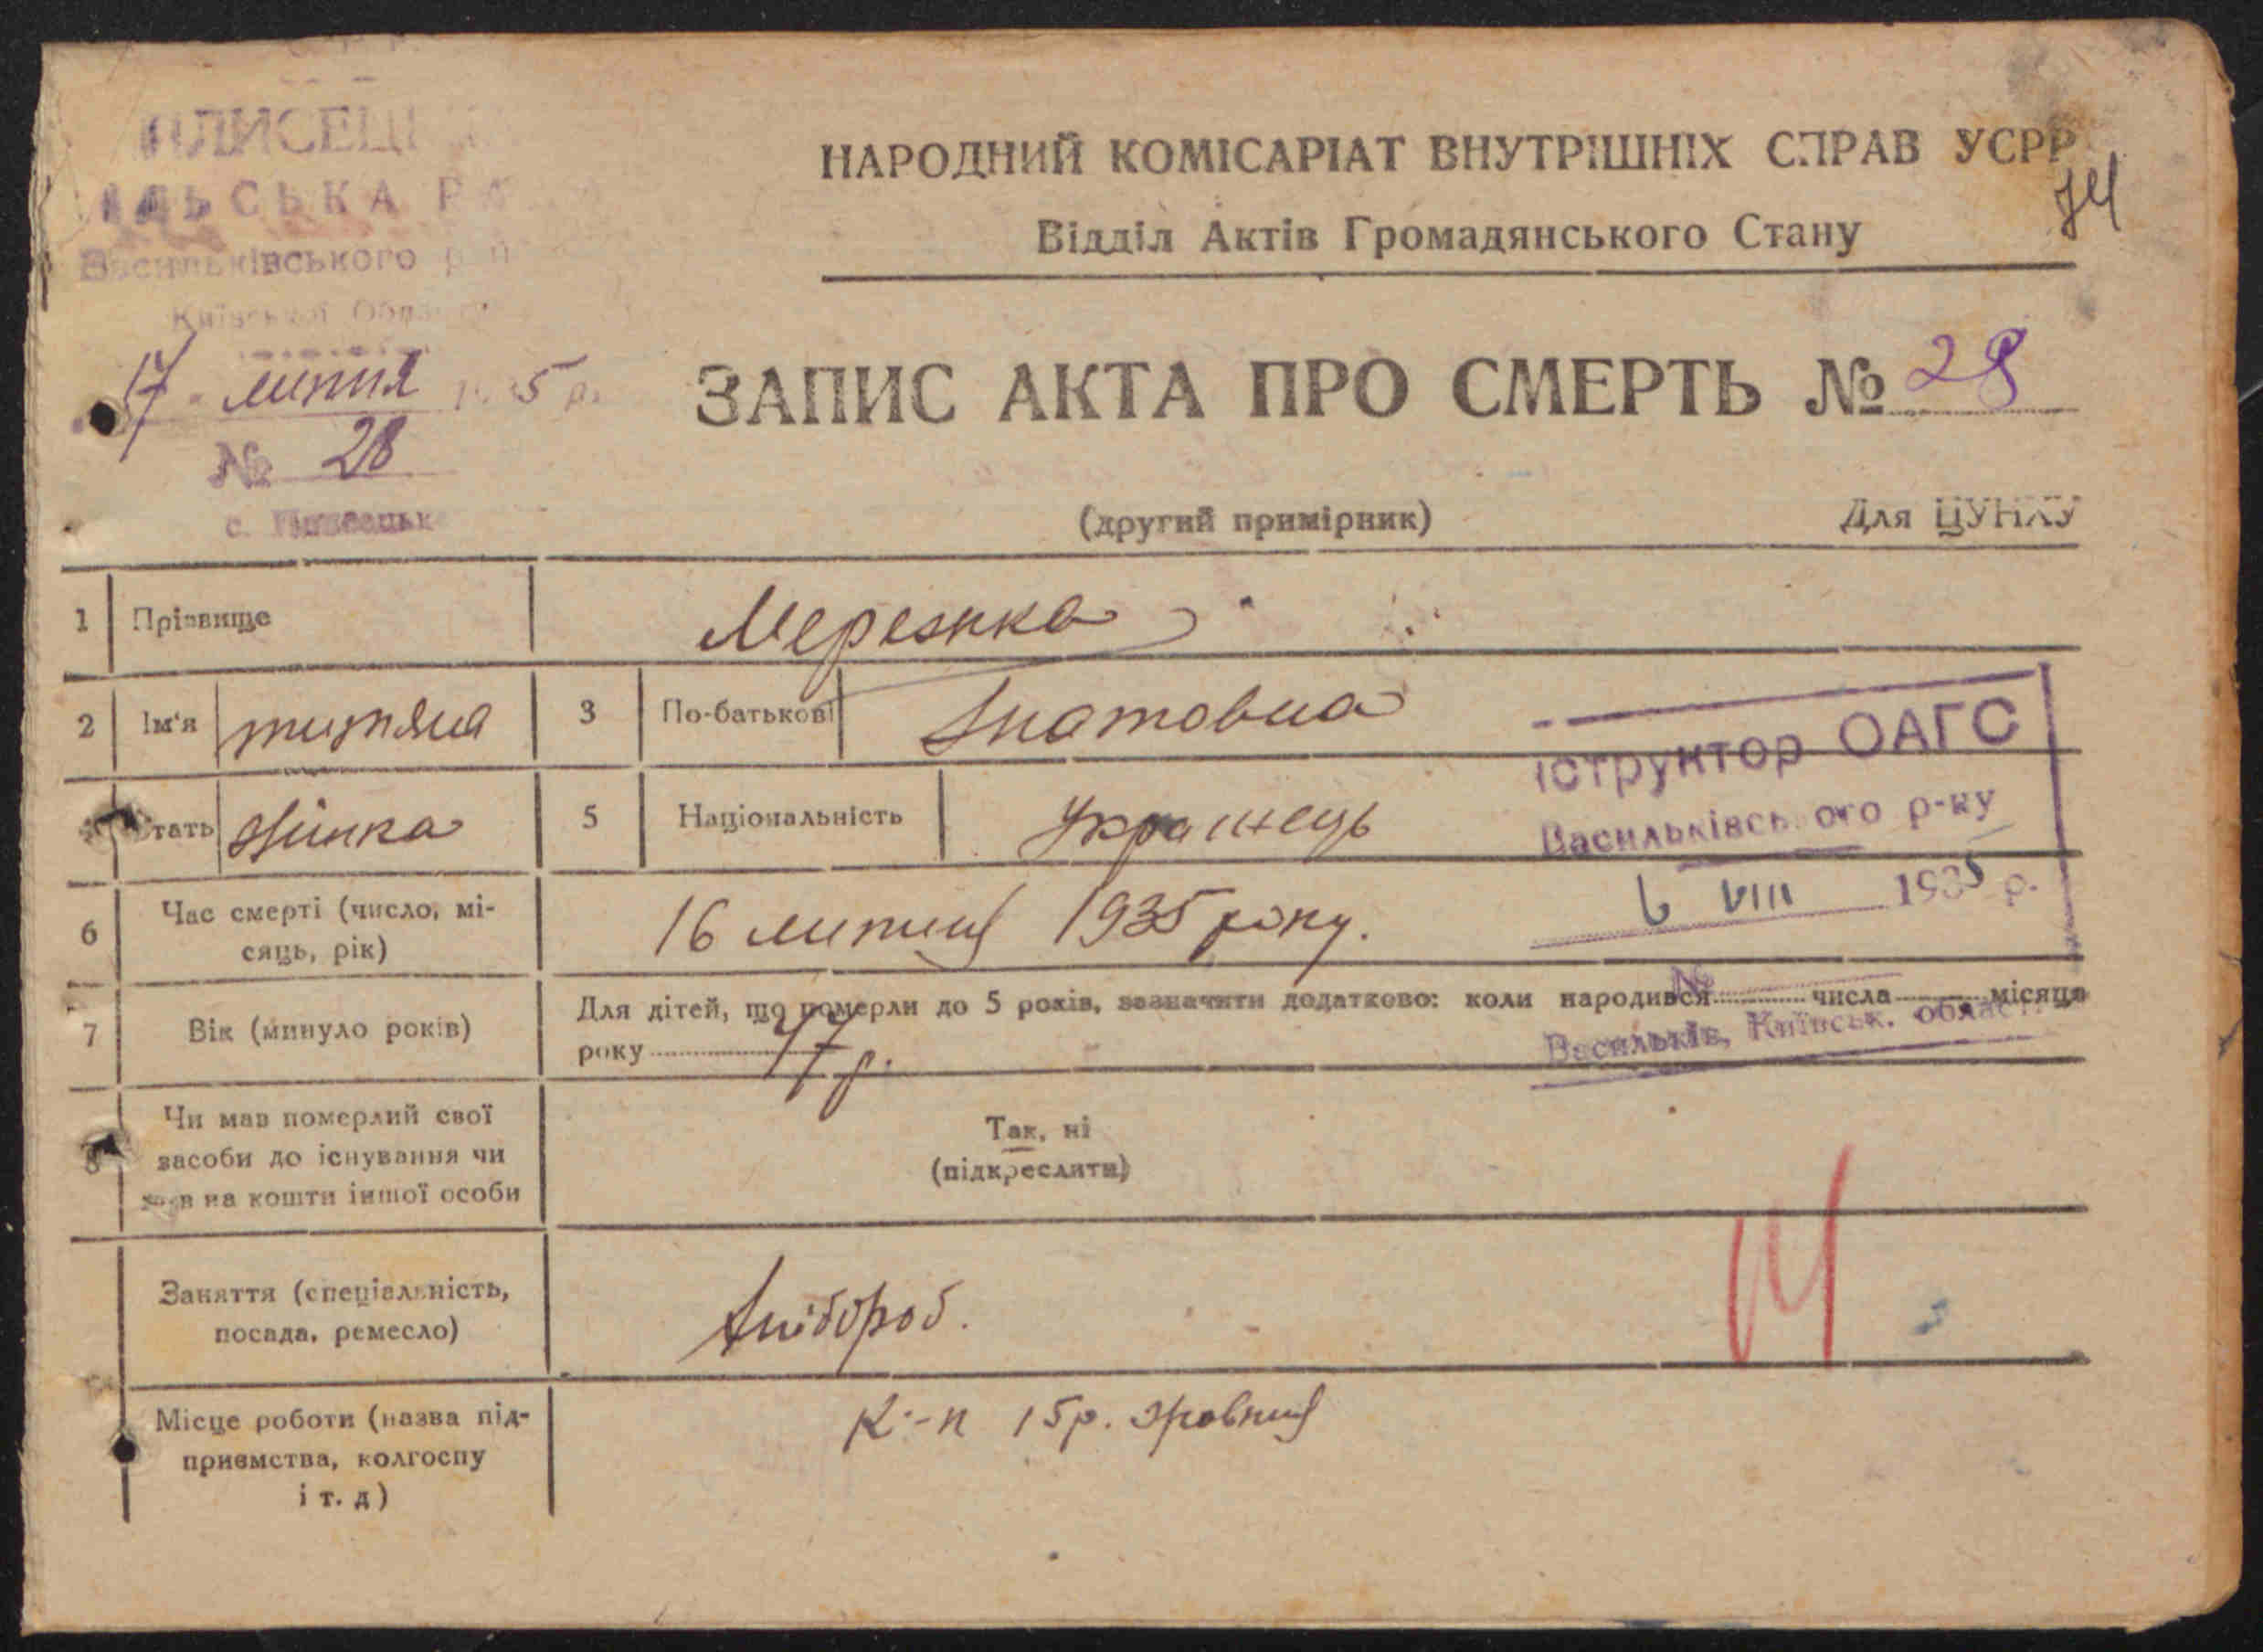 ПЛИСЕЦ
ЛЬСЬКА РА
Васильківського р
Київської Обла
17 липня 1935 р.
№ 28
с.
НАРОДНИЙ КОМІСАРІАТ ВНУТРІШНІХ СПРАВ УСРР
74
Відділ Актів Громадянського Стану
ЗАПИС АКТА ПРО СМЕРТЬ № 28
(другий примірник) Для ЦУНХУ
1 Прізвище Мережка
2 Ім'я 3 По-батькові Гнатовна
тать жінка 5 Національність Українець
іструктор ОАГС
Васильківсь ого р-ку
6 VIII 1935 р.
№
Васильків, Київськ. област
6 Час смерті (число, мі-
сяць, рік) 16 липня 1935 року.
7 Вік (минуло років) Для дітей, що померли до 5 років, зазначити додатково: коли народився числа місяця
року 47 р.
8 Чи мав померлий свої
засоби до існування чи
в на кошти іншої особи
Так, ні
(підкреслити)
Заняття (спеціальність,
посада, ремесло) Хлібороб.
14
Місце роботи (назва під-
приємства, колгоспу
і т. д)
К-п 15р.